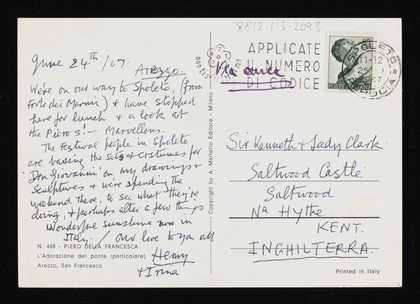 8812.1.3.2093
June 24th/67.
Arezzo.
We're on our way to Spoleto, (from
Forte dei Marmi) & have stopped
here for lunch & a look at
the Piero's! — Marvellous.
The Festival people in Spoleto
are basing the sets & costumes for
'Don Giovanni' on my drawings &
sculptures & we're spending the
weekend there, to see what they're
doing, & perhaps alter a few things
Wonderful sunshine now in
Italy. / Our love to you all
Henry
& Irina
N. 468 - PIERO DELLA FRANCESCA
L'Adorazione del ponte (particolare)
Arezzo, San Francesco
APPLICATE
IL NUMERO
DI CODICE
SPOLETO
Sir Kenneth & Lady Clark
Saltwood Castle
Saltwood
Nr Hythe
KENT.
INGHILTERRA.
Printed in Italy